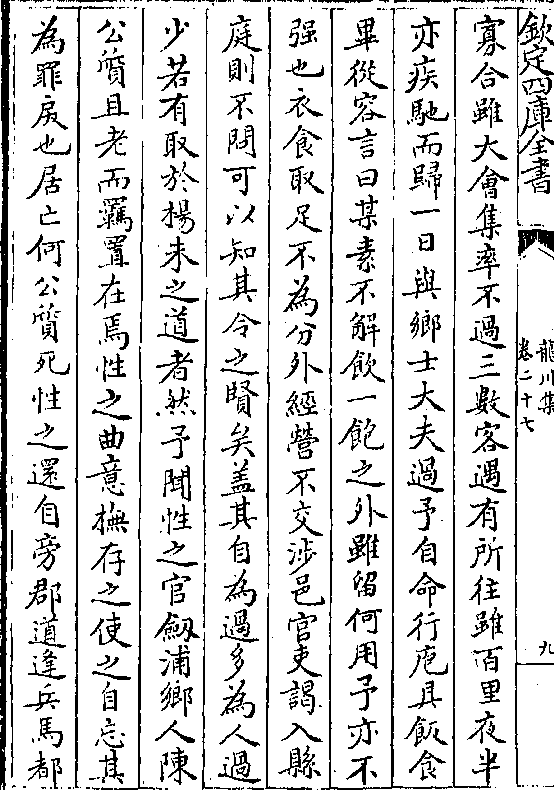 欽定四庫全書
龍川集
卷二十七
九
寡合雖大會集率不過三數客遇有所往雖百里夜半
亦疾馳而歸一日與鄉士大夫過予自命行庖具飯食
畢從容言曰某素不解飲一飽之外雖留何用予亦不
强也衣食取足不為分外經營不交涉邑官吏謁入縣
庭則不問可以知其令之賢矣盖其自為過多為人過
少若有取於楊朱之道者然予聞性之官劔浦鄉人陳
公質且老而羈置在焉性之曲意撫存之使之自忘其
為罪戾也居亡何公質死性之還自旁郡道逢兵馬都